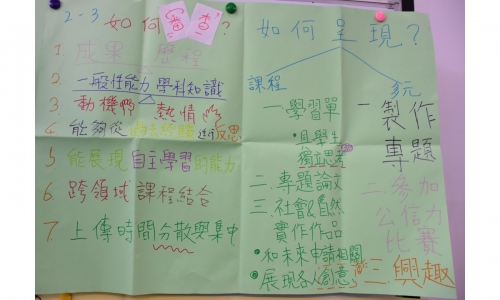 2-3 如何審查?
1. 成果 歷程
2. 一般性能力 學科知識
3. 動機啊 熱情
4. 能夠從 進行反思
5. 能展現自主學習的能力
6. 跨領域課程結合
7. 上傳時間分散與集中
如何呈現?
課程
一.學習單
•具學生
獨立思考
二.專題論文
三.社會&自然
實作作品
•和未來申請相關
•展現各人創意
多元
一製作
專題
二參加
公信力
比賽
三.興趣